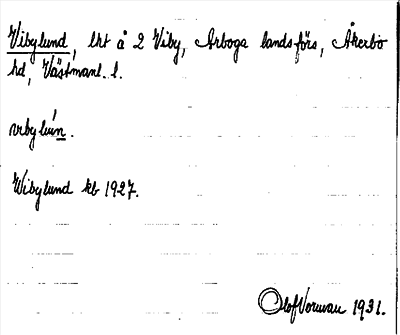 Vibylund, lht å 2 Viby, Arboga landsförs, Åkerbo
hd, Västmanl. l.
vibylún.
Wibylund kb 1927.
Olof Vorman 1931.